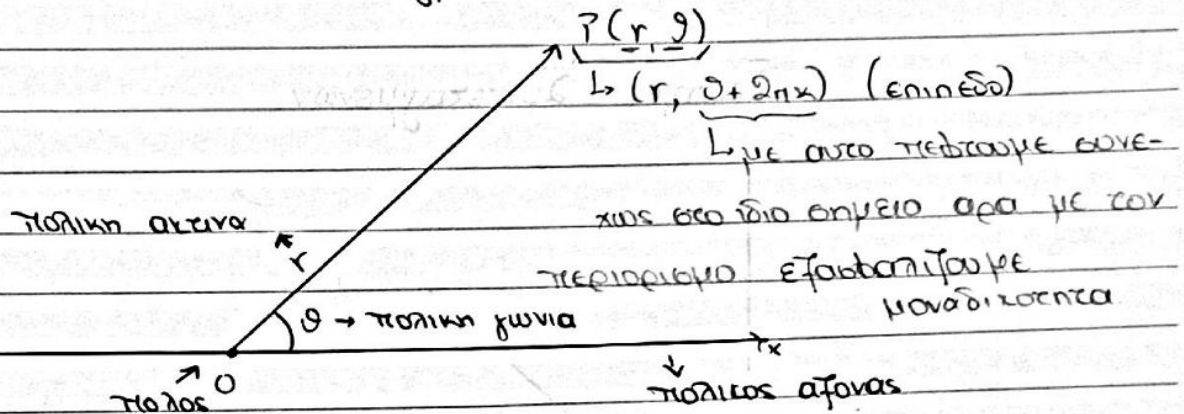 P(r, θ)
↳ (r, θ + 2πκ) (επιπεδο)
↳ με αυτο πεφτουμε συνε-
χως στο ίδιο σημειο αρα με τον
περιορισμο εξασφαλιζουμε
μοναδικοτητα
πολικη ακτινα
r
θ → πολικη γωνια
x
Ο
πολος
πολικος αξονας